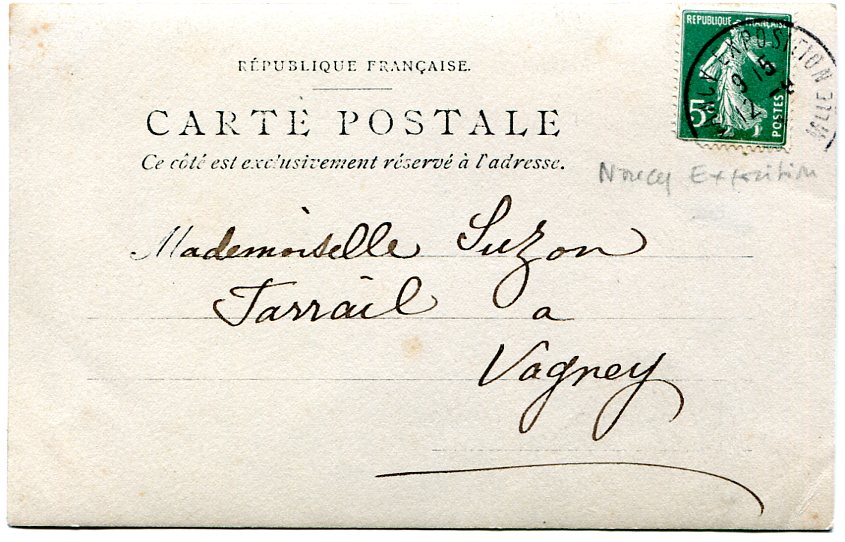 RÉPUBLIQUE FRANÇAISE.
CARTE POSTALE
Ce côté est exclusivement réservé à l'adresse.
REPUBLIQUE FRANÇAISE
5c
POSTES
NANCY EXPOSITION
9 15
12
Nancy Exposition
Mademoiselle Suzon
Farrail a
Vagney